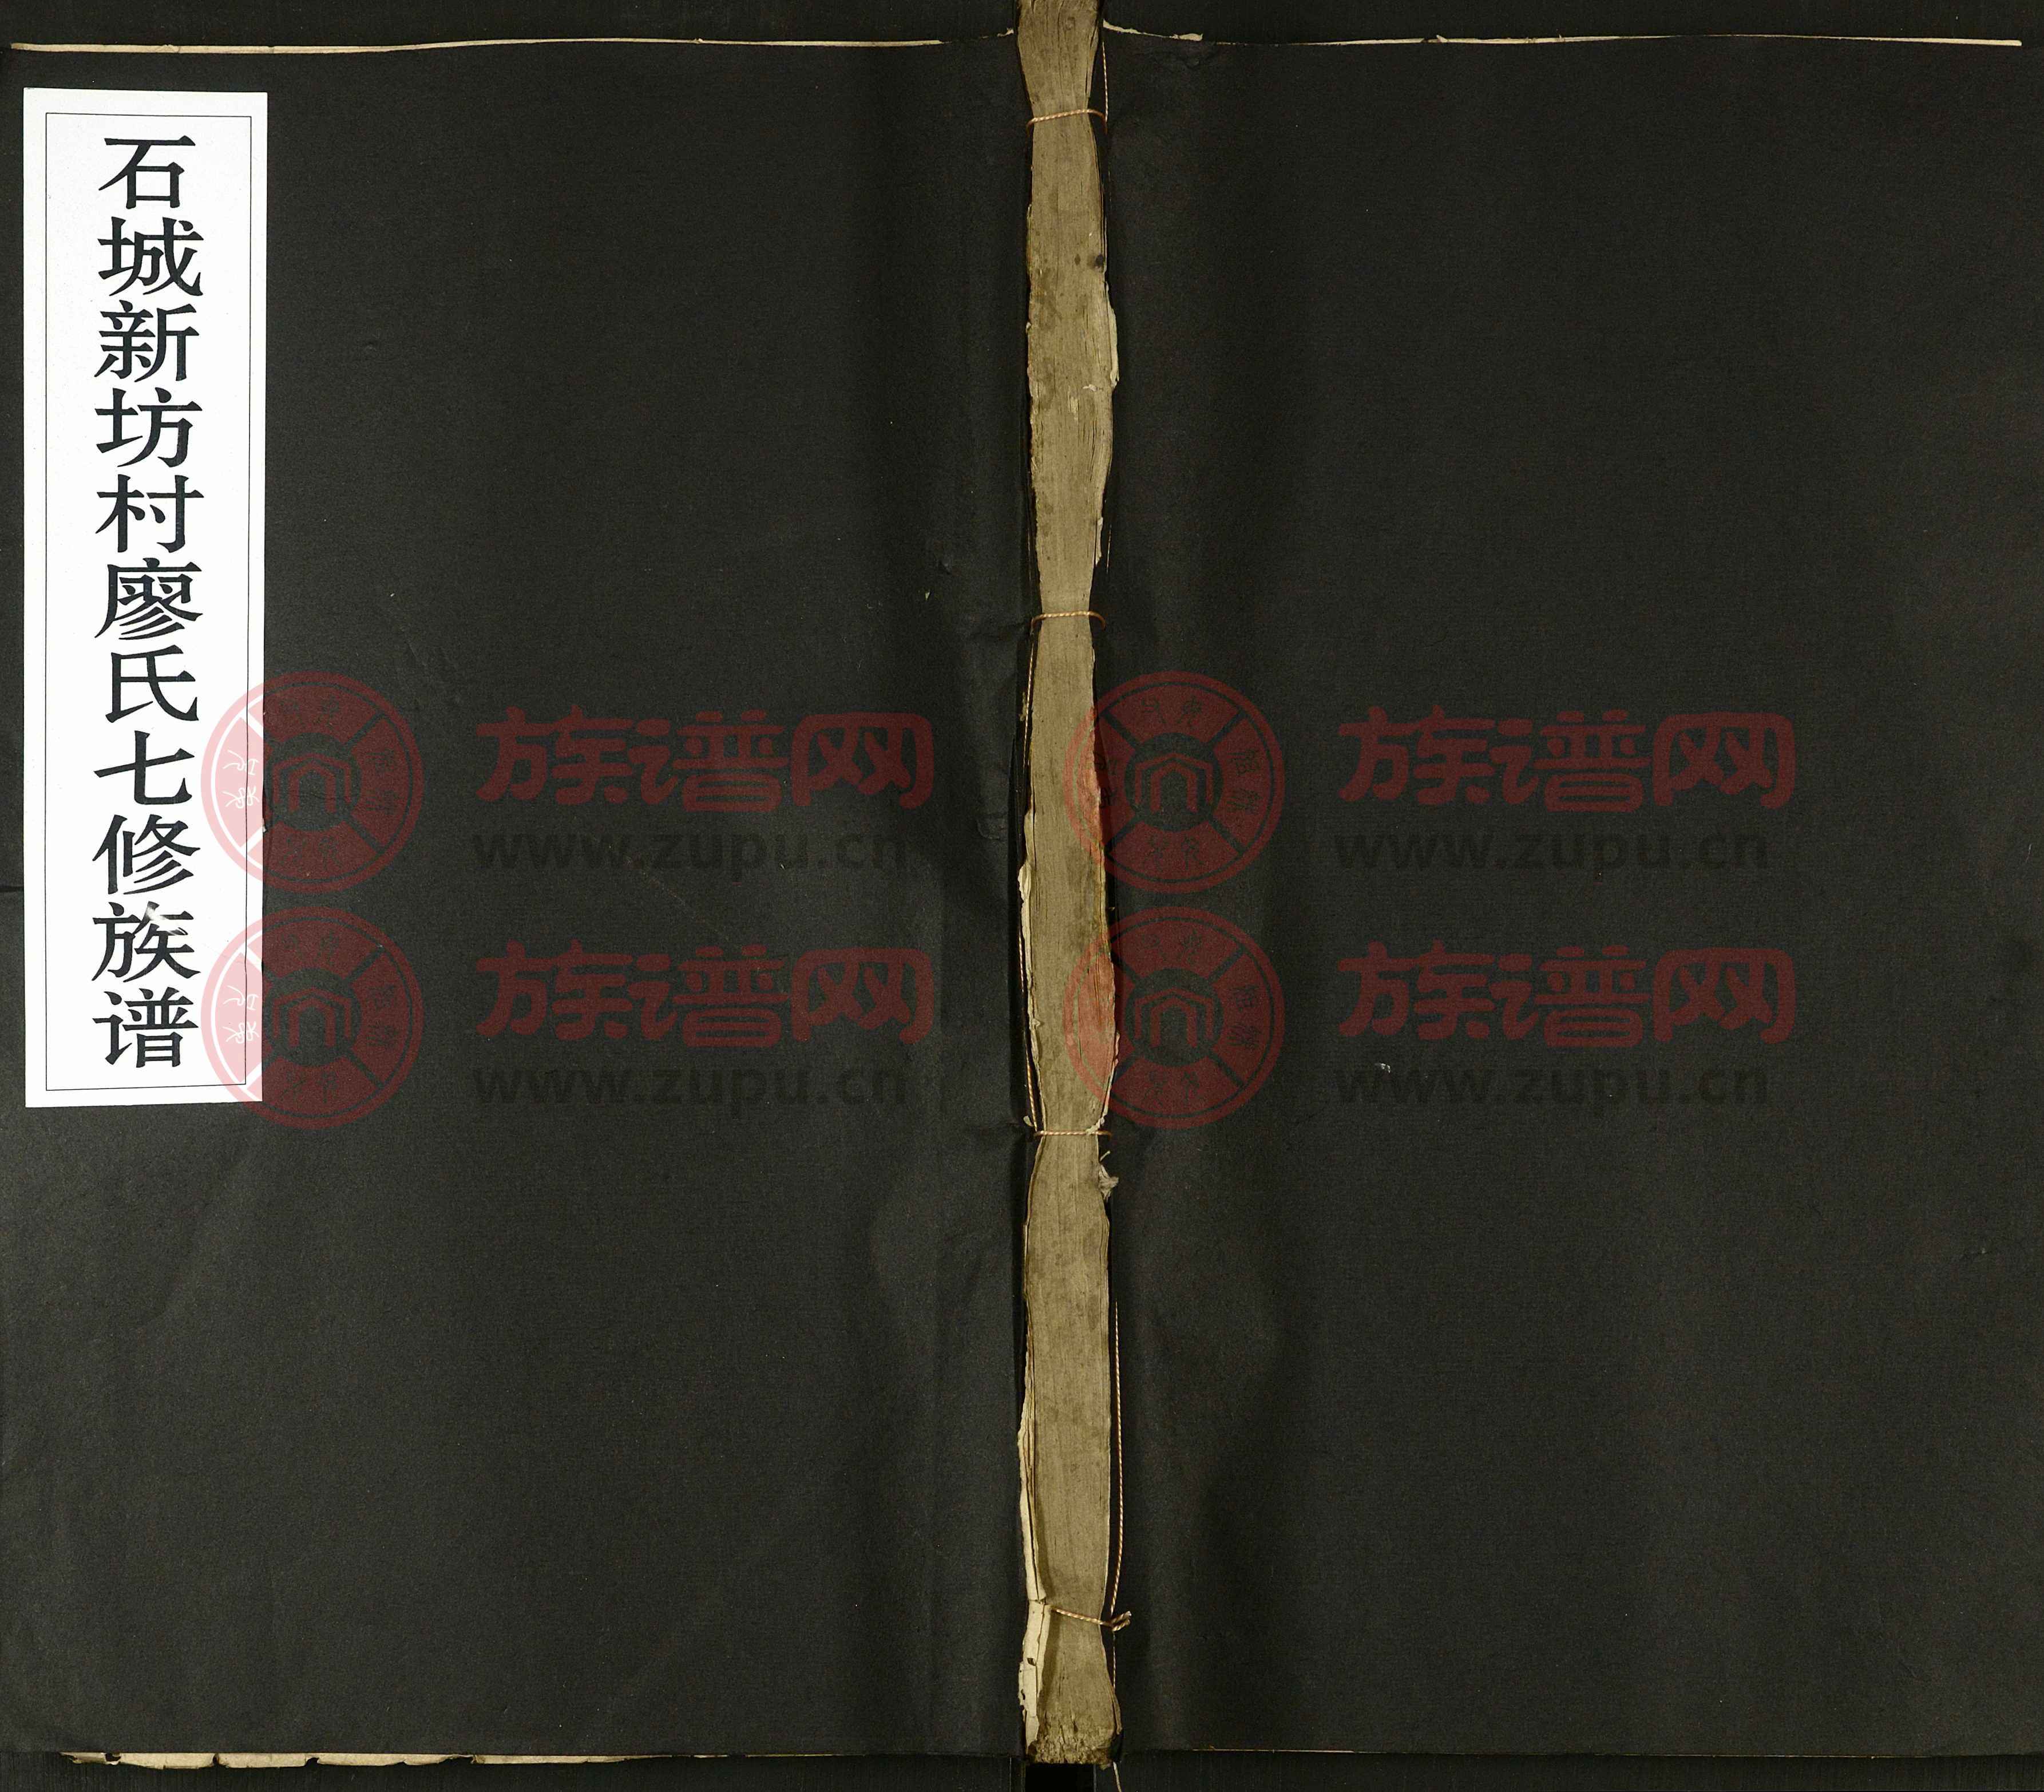 石城新坊村廖氏七修族谱
族谱网 族谱网
www.zupu.cn www.zupu.cn
族谱网 族谱网
www.zupu.cn www.zupu.cn